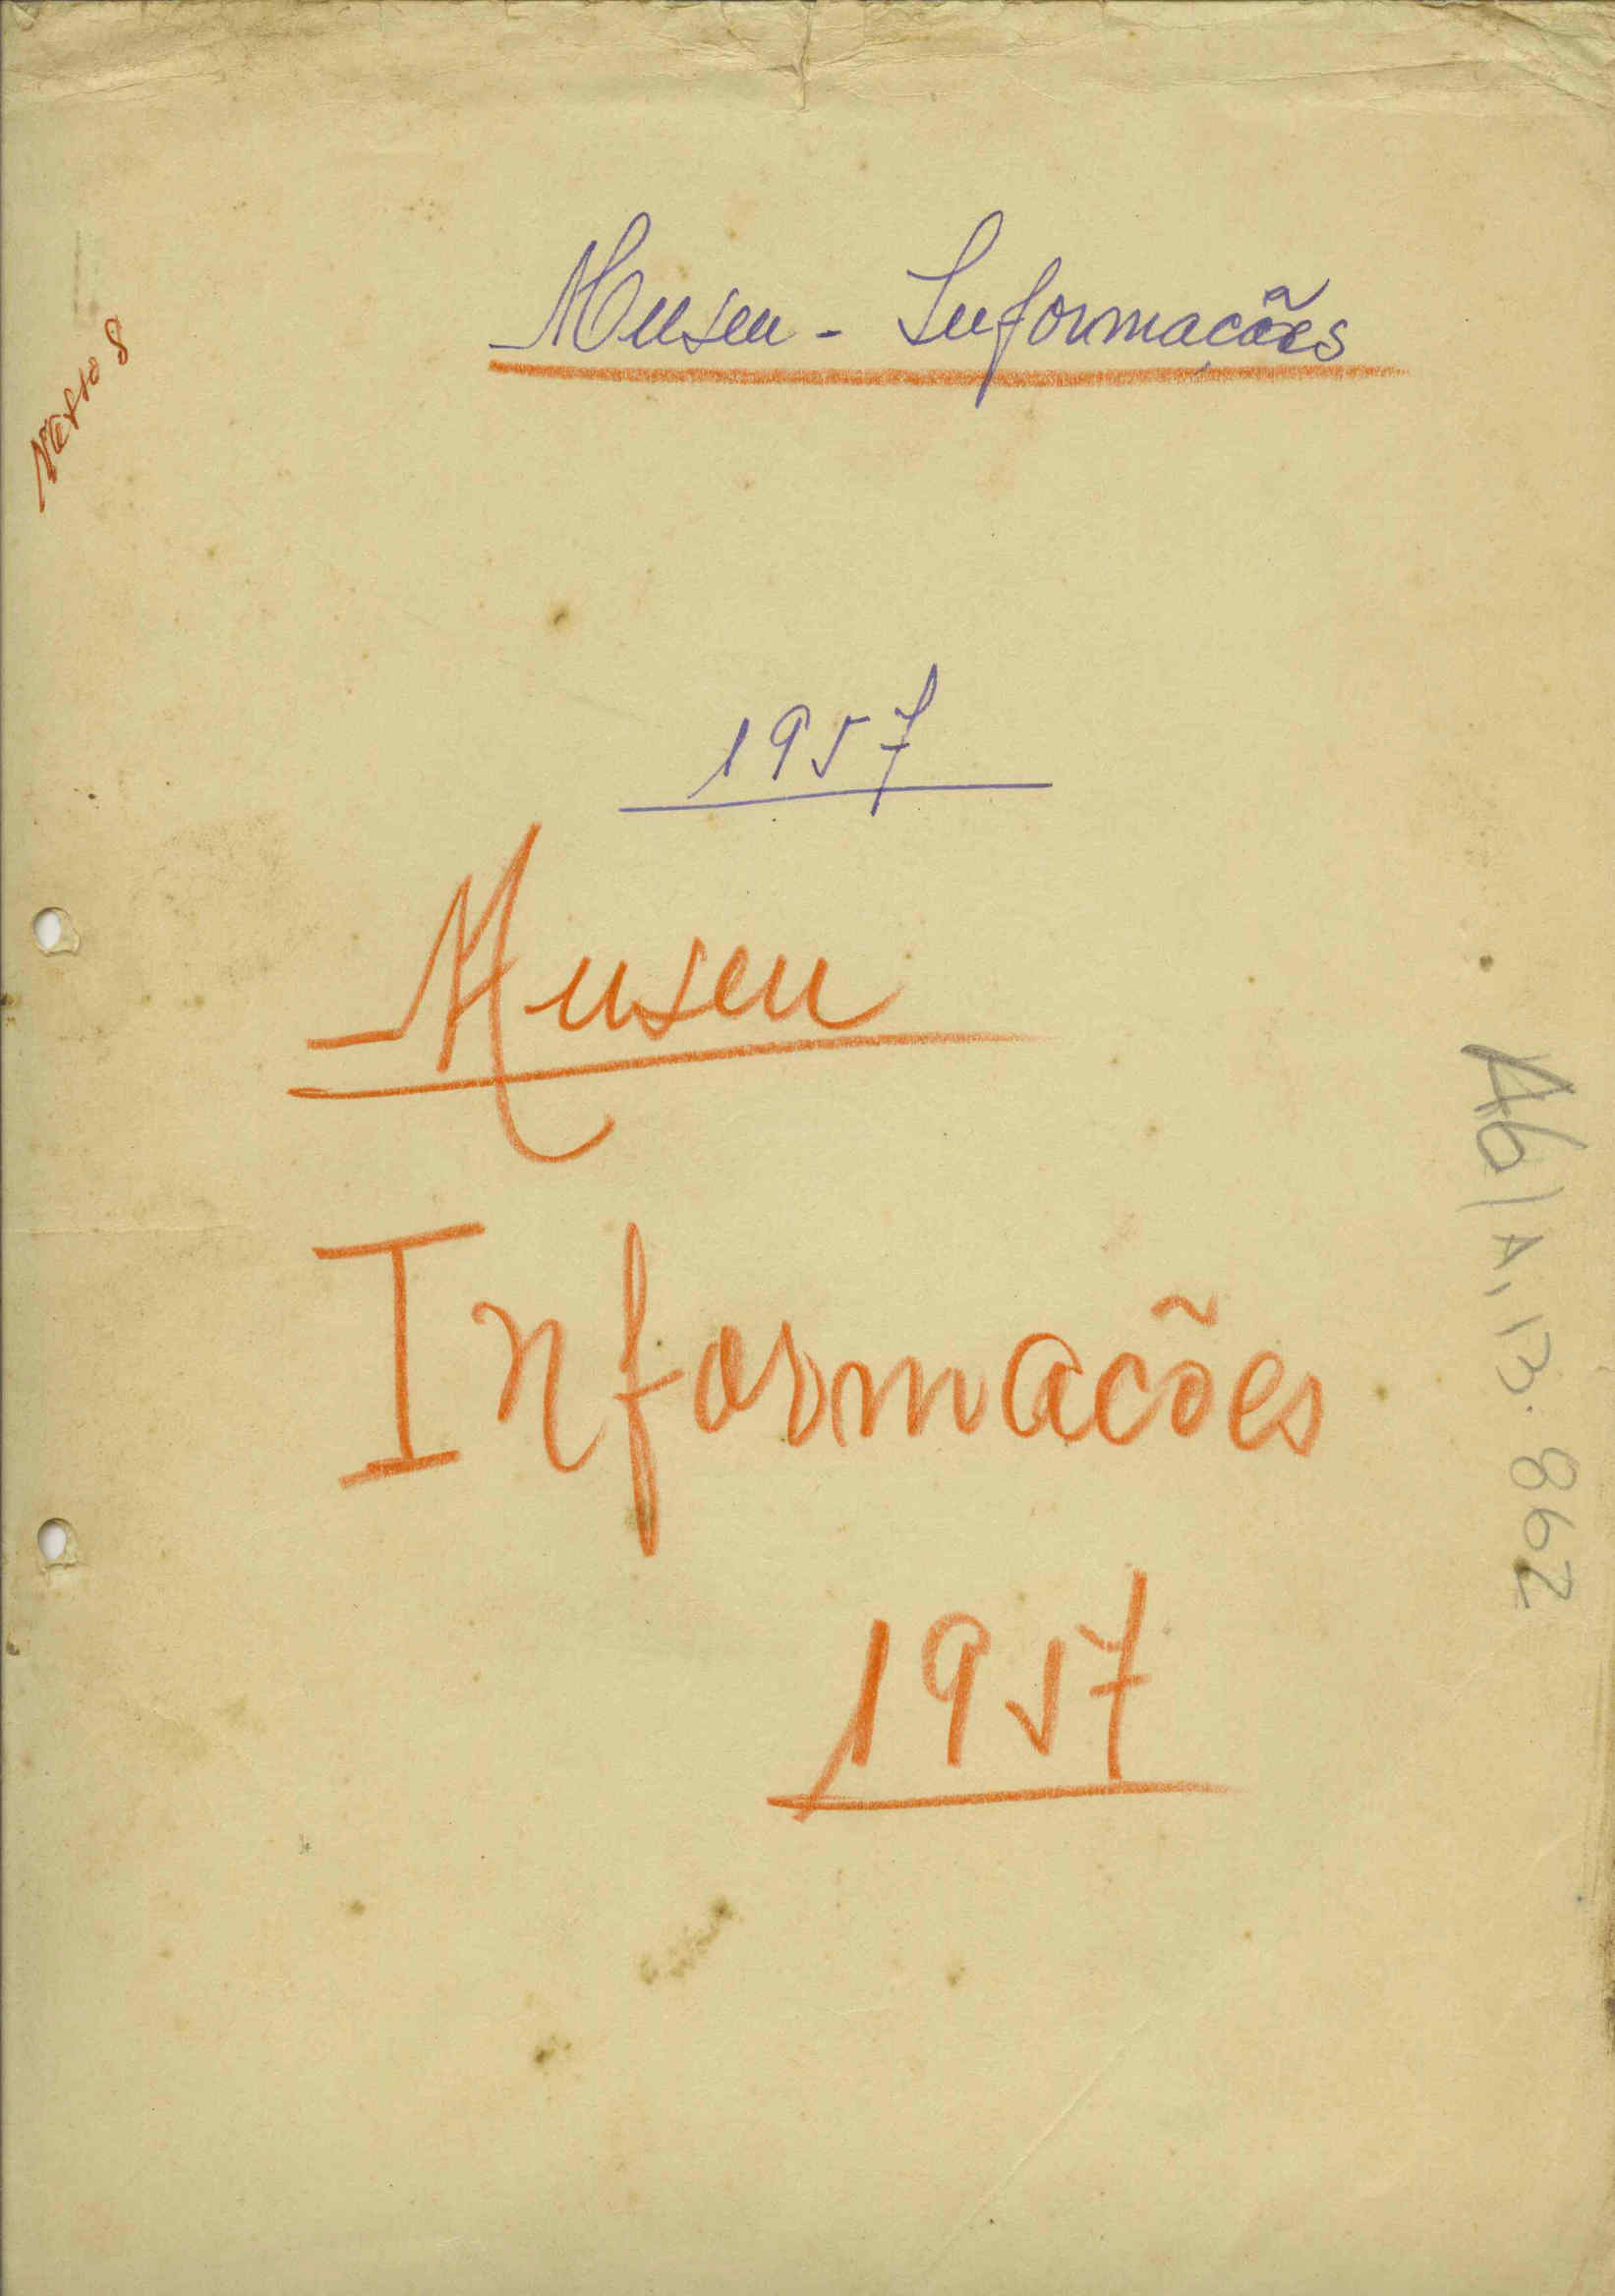 Museu - Informações
1957
Museu
Informacões
1957
A6/A, 13. 862